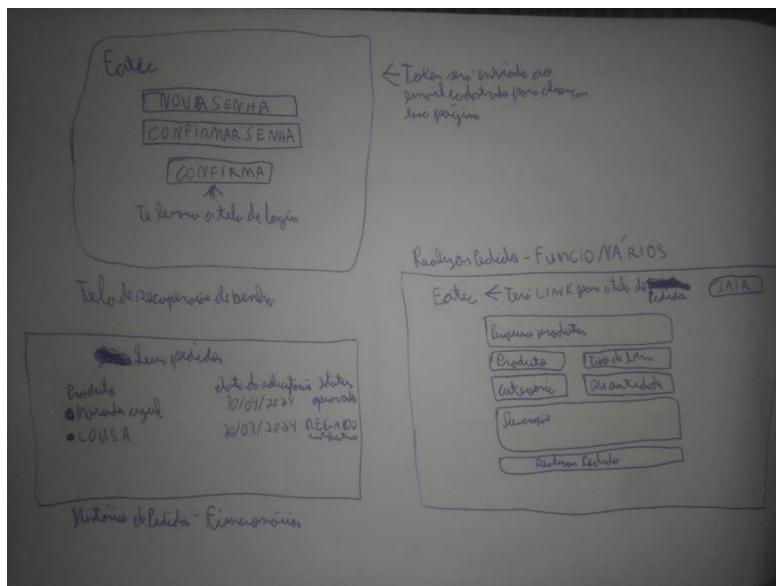 Eatec
NOVA SENHA
CONFIRMAR SENHA
CONFIRMA
Te levará a tela de login
← Token será enviado ao
email cadastrado para alcançar
essa página
Tela de recuperação de senha
Seus pedidos
Produto data da solicitação Status
• azul 10/04/2024 aprovado
• LOUSA 20/03/2024 NEGADO
Histórico de Pedidos - Funcionários
Realizar Pedido - FUNCIONÁRIOS
Eatec ← Terá LINK para a tela de Pedidos SAIR
Pesquisar produtos
Produto Tipo de
Categoria Quantidade
Descrição
Realizar Pedido